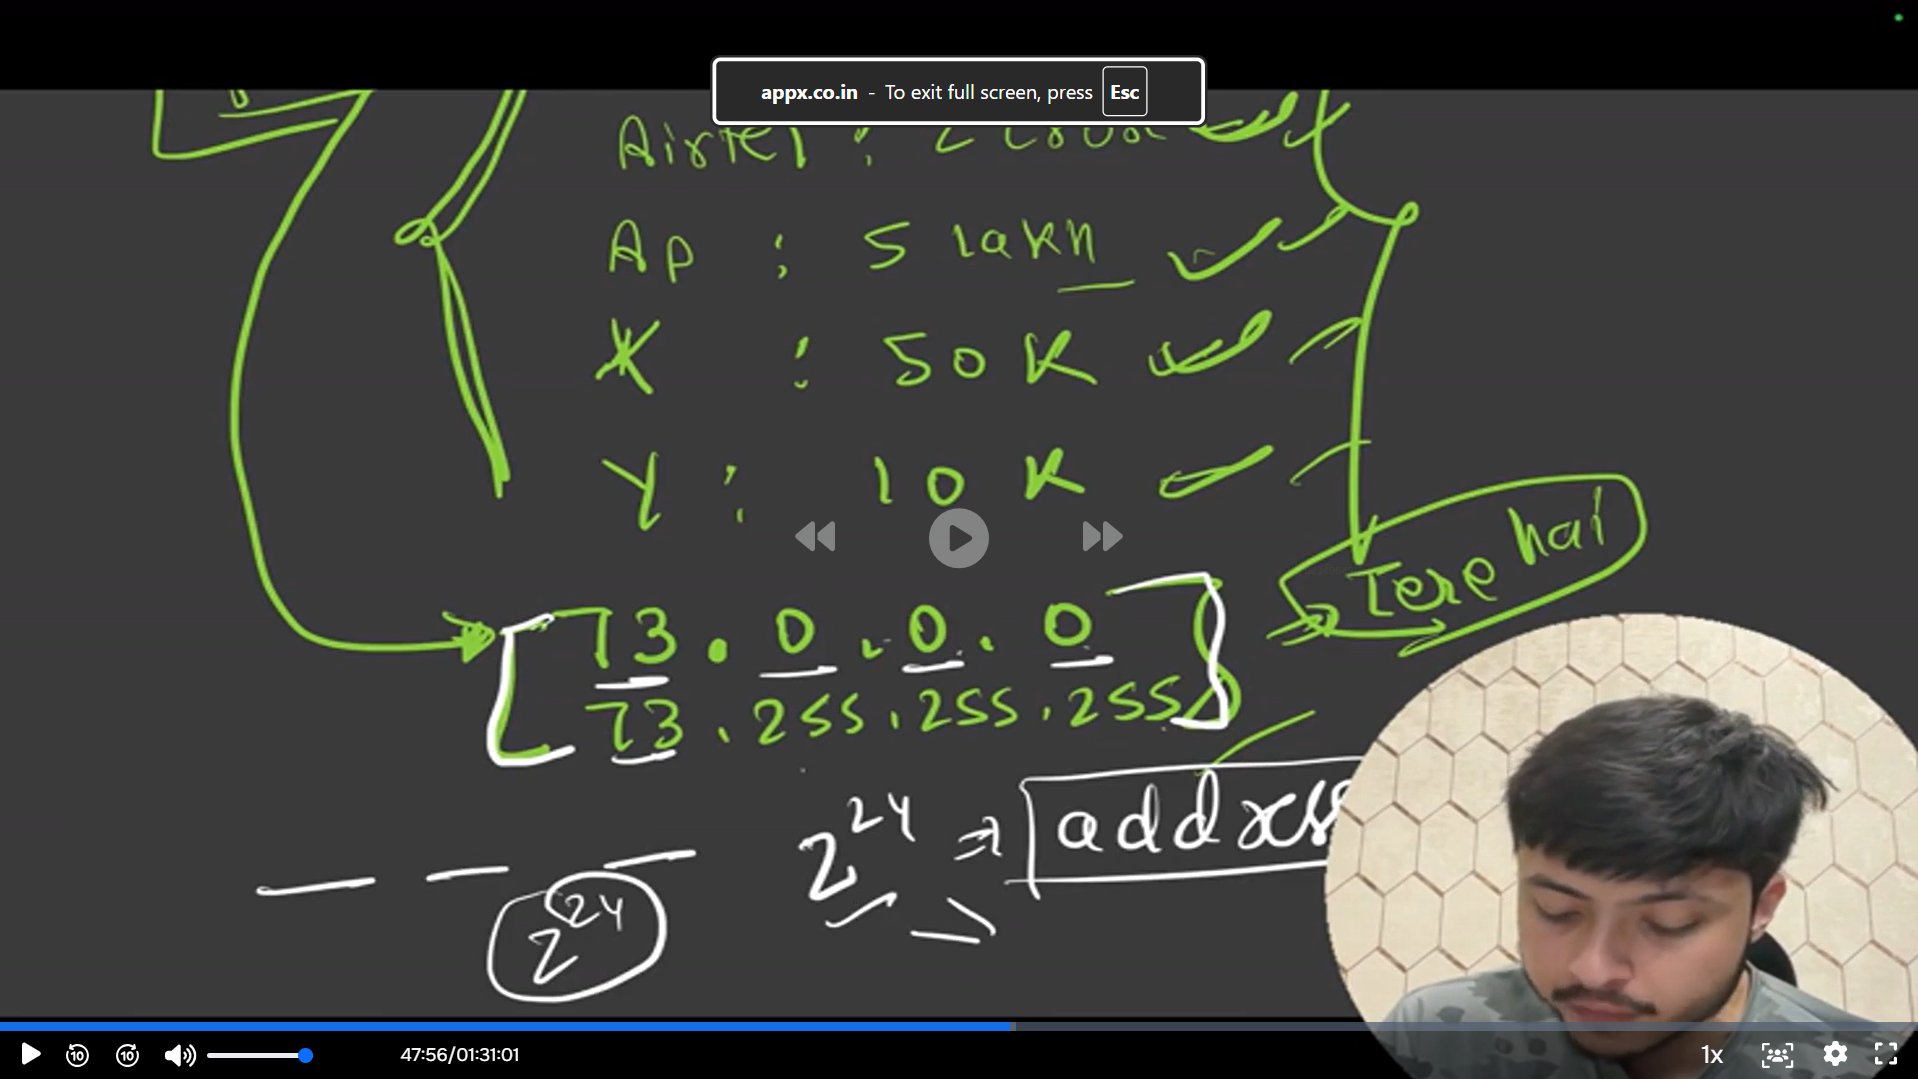 appx.co.in - To exit full screen, press Esc
Airtel :
Ap : 5 lakh
X : 50K
Y : 10K
Tere hai
73.0.0.0
73.255.255.255
2^24 ⇒
2^24
10 10 47:56/01:31:01 1x